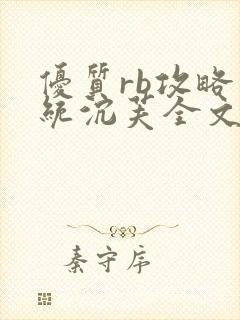 優質rb攻略
統沉芙全文
秦守序